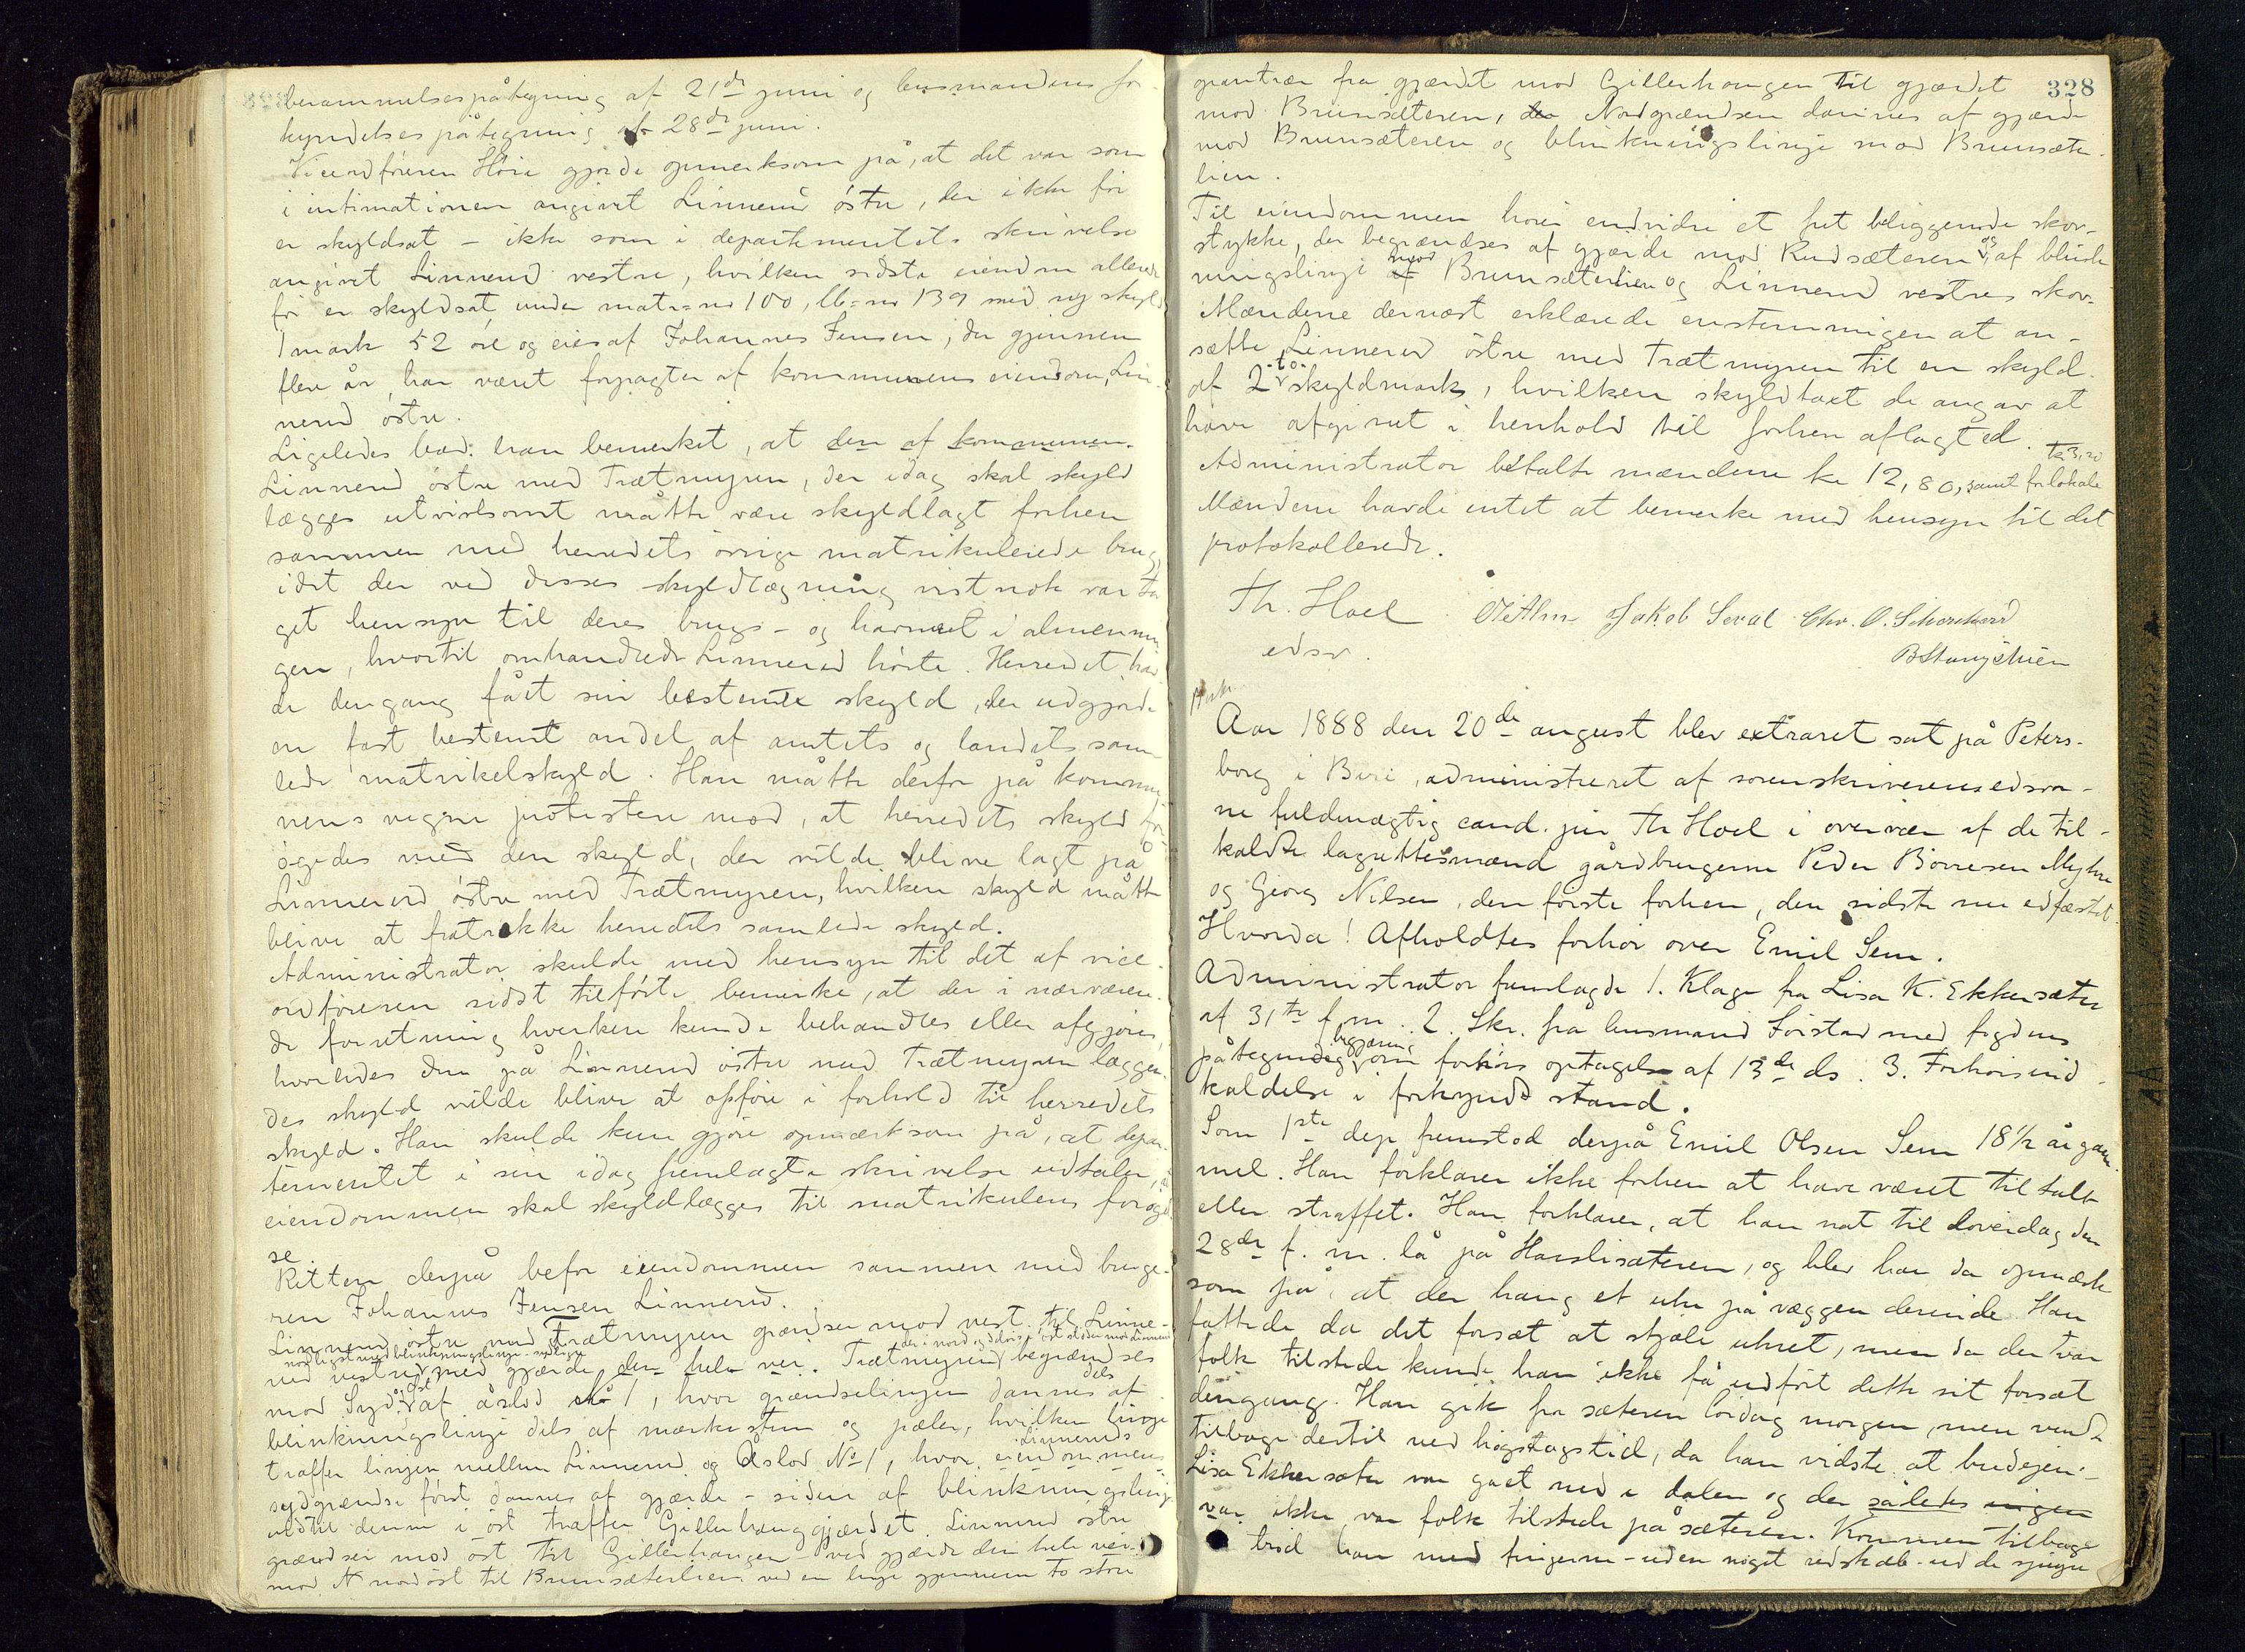 berammelsespåtegning af 21de juni og lensmandens for-
kyndelsespåtegning af 28de juni.
Viceordføreren Höie gjorde opmerksom på, at det var som
i intimationen angivet Linnerud östre, der ikke för
er skyldsat - ikke som i departementets skrivelse
angivet Linnerud vestre, hvilken sidste eiendom allerede
för er skyldsat under matr-no 100, lb-no 139 med ny skyld
1 mark 52 öre og eies af Johannes Jensen, der gjennem
flere år har været forpagter af kommunens eiendom, Lin-
nerud östre.
Ligeledes bad han bemerket, at den af kommunen
Linnerud östre med Trætmyren, der idag skal skyld
lægges utvivlsomt måtte være skyldlagt forhen
sammen med herredets övrige matrikulerede brug
idet der ved disses skyldlægning vistnok var ta
get hensyn til deres brugs- og havneret i almennin
gen, hvortil omhandlede Linnerud hörte. Herredet hav
de dengang fået sin bestemte skyld, der udgjorde
en fast bestemt andel af amtets og landets sam-
lede matrikelskyld. Han måtte derfor på kommu
nens vegne protestere mod, at herredets skyld for
ögedes med den skyld, der vilde blive lagt på
Linnerud östre med Trætmyren, hvilken skyld måtte
blive at fratrekke herredets samlede skyld.
Administrator skulde med hensyn til det af vice-
ordföreren sidst tilförte bemerke, at der i nærværen-
de forretning hverken kunde behandles eller afgjöres,
hvorledes den på Linnerud östre med Trætmyren læggen-
des skyld vilde blive at opföre i forhold til herredets
skyld. Han skulde kun gjöre opmærksom på, at depar-
tementet i sin idag fremlagte skrivelse udtaler, at
eiendommen skal skyldlægges til matrikulens foröget
se.
Retten derpå befor eiendommen sammen med bruge-
ren Johannes Jensen Linnerud.
Linnerud östre med Trætmyren grændser mod vest til Linne-
nordligst med blinkningslinje sydligst der i nord og delvist öst stöder mod Linnerud
rud vestre med gjærde den hele vei. Trætmyren begrændses
mod Syd og öst af åslod No 1, hvor grændselinjen dannes dels af
blinkningslinje dels af merkesten og pæler, hvilken linje
træffer linjen mellem Linnerud og Åslod No 1, hvor Linneruds eiendommens
sydgrændse först dannes af gjærde - siden af blinkningslinje
indtil denne i öst træffer Gillerhauggjærdet. Linnerud östre
grændser mod öst til Gillerhaugen - ved gjærde den hele vei.
mod N nordöst til Brunsæterlien ved en linje gjennem to store
328
grantrær fra gjærdet mod Gillerhaugen til gjærdet
mod Brunsæteren, Nordgrændsen dannes af gjærde
mod Brunsæteren og blinkningslinje mod Brunsæter-
lien.
Til eiendommen hörer endvidere et frit beliggende skov-
stykke, der begrændses af gjærde mod Rudsæteren og af blink
ningslinje mod Brunsæterlien og Linnerud vestres skov.
Mændene dernæst erklærede enstemmigen at an-
sætte Linnerud östre med Trætmyren til en skyld
af 2 -to- skyldmark, hvilken skyldtaxt de angav at
have afgivet i henhold til forhen aflagt ed.
Administrator betalte mændene kr 12,80, samt for lokale kr 3,20
Mændene havde intet at bemerke med hensyn til det
protokollerede.
Th. Hoel
edsv.
Jakob Seval Chr. O.
Aar 1888 den 20de august blev extraret sat på Peters-
borg i Biri, administreret af sorenskriverens edsvor-
ne fuldmægtig cand. jur Th Hoel i overvær af de til-
kaldte lagrettesmænd gårdbrugerne Peder Börresen Myhre
og Georg Nilsen, den förste forhen, den sidste nu edfæstet.
Hvorda! Afholdtes forhör over Emil Sem.
Administrator fremlagde 1. Klage fra Lisa K. Ekkersæter
af 31te f. m. 2. Skr. fra lensmand Förstad med fogdens
påtegnede begjæring om forhörs optagelse af 13de ds. 3. Forhörsind-
kaldelse i forkyndt stand.
Som 1ste dep. fremstod derpå Emil Olsen Sem 18 1/2 år gam-
mel. Han forklarer ikke forhen at have været tiltalt
eller straffet. Han forklarer, at han nat til löverdag den
28de f. m. lå på Havslisæteren, og blev han da opmærk
som på, at der hang et uhr på væggen derinde. Han
fattede da det forsæt at stjæle uhret, men da der var
folk tilstede kunde han ikke få udfört dette sit forsæt
dengang. Han gik fra sæteren lördag morgen, men vendte
tilbage dertil ved högstdagstid, da han vidste at budejen
Lisa Ekkersæter var gået ned i dalen og der således ingen
var ikke var folk tilstede på sæteren. Kommen tilbage
bröd han med fingerne - uden noget redskab - ud de